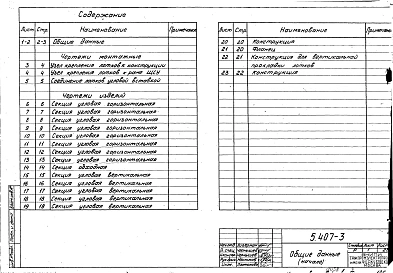 Содержание
Лист Стр. Наименование Примечание
1-2 2-3 Общие данные
Чертежи монтажные
3 4 Узел крепления лотков к конструкции
4 4 Узел крепления лотков к раме ШСУ
5 5 Соединение лотков угловой вставкой
Чертежи изделий
6 6 Секция угловая горизонтальная
7 7 Секция угловая горизонтальная
8 8 Секция угловая горизонтальная
9 9 Секция угловая горизонтальная
10 10 Секция угловая горизонтальная
11 11 Секция угловая горизонтальная
12 12 Секция угловая горизонтальная
13 13 Секция угловая горизонтальная
14 14 Секция обходная
15 15 Секция угловая вертикальная
16 16 Секция угловая вертикальная
17 17 Секция угловая вертикальная
18 18 Секция угловая вертикальная
19 19 Секция угловая вертикальная
Лист Стр. Наименование Примечание
20 20 Конструкция
21 20 Фланец
22 21 Конструкция для вертикальной
прокладки лотков
23 22 Конструкция
5.407-3
Общие данные
(начало)